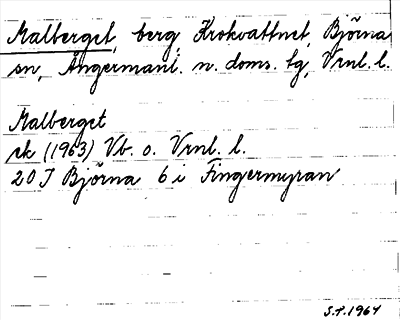 Malberget, berg, Krokvattnet, Björna
sn, Ångermanl. n. doms. tg, Vrnl. l.
Malberget
ek (1963) Vb. o. Vrnl. l.
20 J Björna 6 i Fingermyran
S.P. 1964